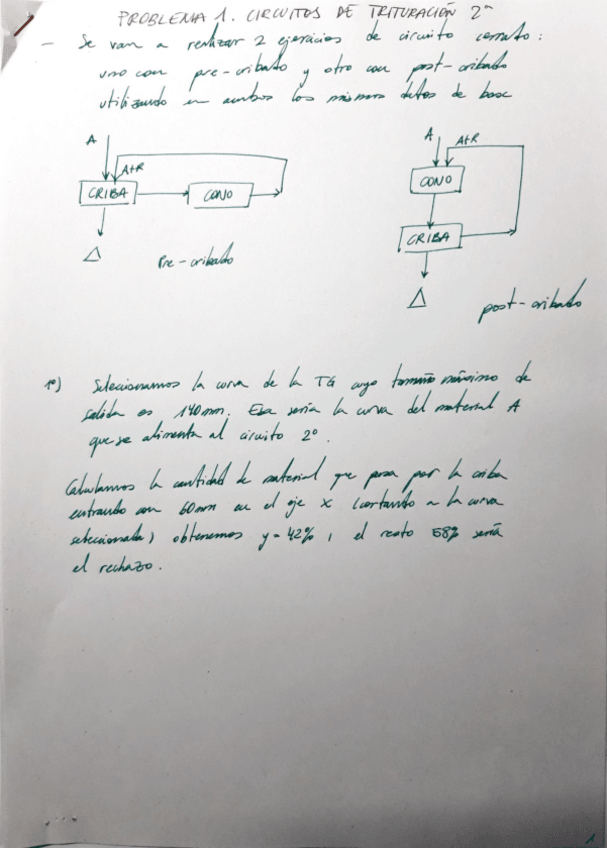 PROBLEMA 1. CIRCUITOS DE TRITURACIÓN 2ª
- Se van a realizar 2 ejercicios de circuito cerrado:
uno con pre-cribado y otro con post-cribado
utilizando en ambos los mismos datos de base
A
A+R
CRIBA
CONO
Δ
Pre-cribado
A
A+R
CONO
CRIBA
Δ
post-cribado
1º) Seleccionamos la curva de la TG cuyo tamaño máximo de
salida es 140mm. Esa sería la curva del material A
que se alimenta al circuito 2º.
Calculamos la cantidad de material que pasa por la criba
entrando con 60mm en el eje x (cortando a la curva
seleccionada) obtenemos y=42%, el resto 58% sería
el rechazo.
1